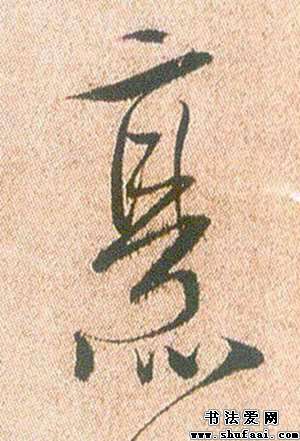 烹
书法爱网
www.shufaai.com